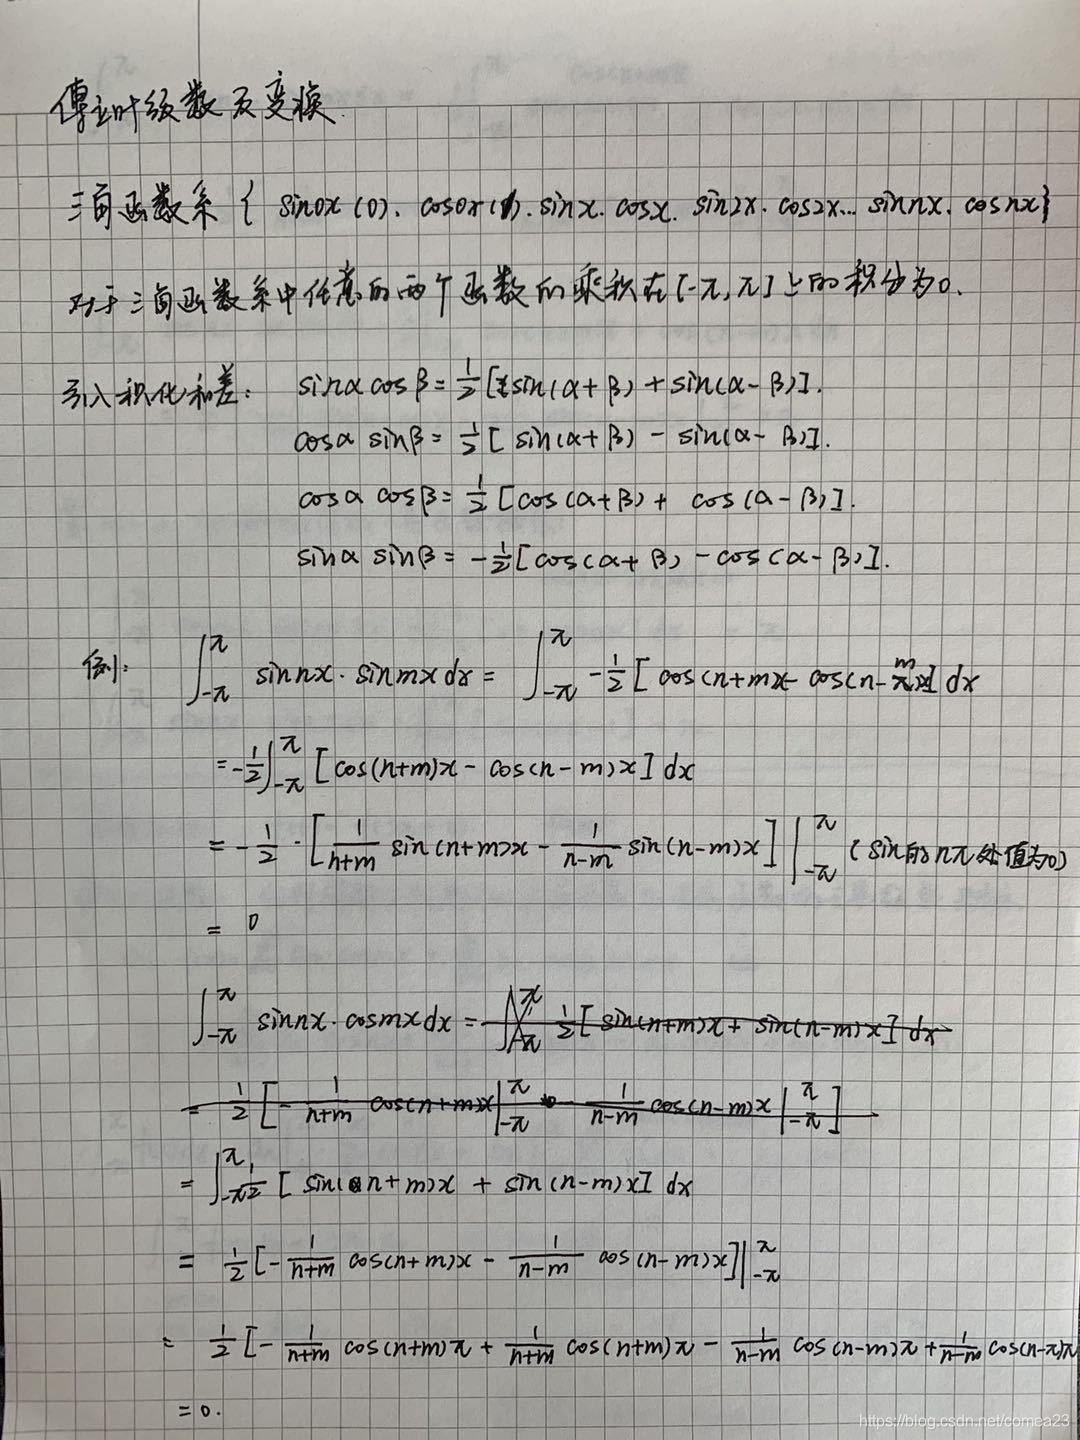 傅立叶级数及变换.
三角函数系 { sin0x (0). cos0x (1). sinx. cosx. sin2x. cos2x... sinnx. cosnx}
对于三角函数系中任意的两个函数的乘积在[-π,π]上的积分为0.
引入积化和差: sinα cosβ = 1/2 [sin(α+β) + sin(α-β)].
cosα sinβ = 1/2 [ sin(α+β) - sin(α-β)].
cosα cosβ = 1/2 [cos(α+β) + cos(α-β)].
sinα sinβ = -1/2 [cos(α+β) - cos(α-β)].
例: ∫_{-π}^{π} sinnx · sinmx dx = ∫_{-π}^{π} -1/2 [ cos(n+m)x - cos(n-m)x] dx
= -1/2 ∫_{-π}^{π} [cos(n+m)x - cos(n-m)x] dx
= -1/2 · [1/(n+m) sin(n+m)x - 1/(n-m) sin(n-m)x] |_{-π}^{π} (sin的nπ处值为0)
= 0
∫_{-π}^{π} sinnx · cosmx dx = ∫_{-π}^{π} 1/2 [ sin(n+m)x + sin(n-m)x] dx
= 1/2 [ - 1/(n+m) cos(n+m)x |_{-π}^{π} - 1/(n-m) cos(n-m)x |_{-π}^{π} ]
= ∫_{-π}^{π} 1/2 [ sin(n+m)x + sin(n-m)x] dx
= 1/2 [- 1/(n+m) cos(n+m)x - 1/(n-m) cos(n-m)x] |_{-π}^{π}
= 1/2 [- 1/(n+m) cos(n+m)π + 1/(n+m) cos(n+m)π - 1/(n-m) cos(n-m)π + 1/(n-m) cos(n-π)π
= 0.
https://blog.csdn.net/comea23